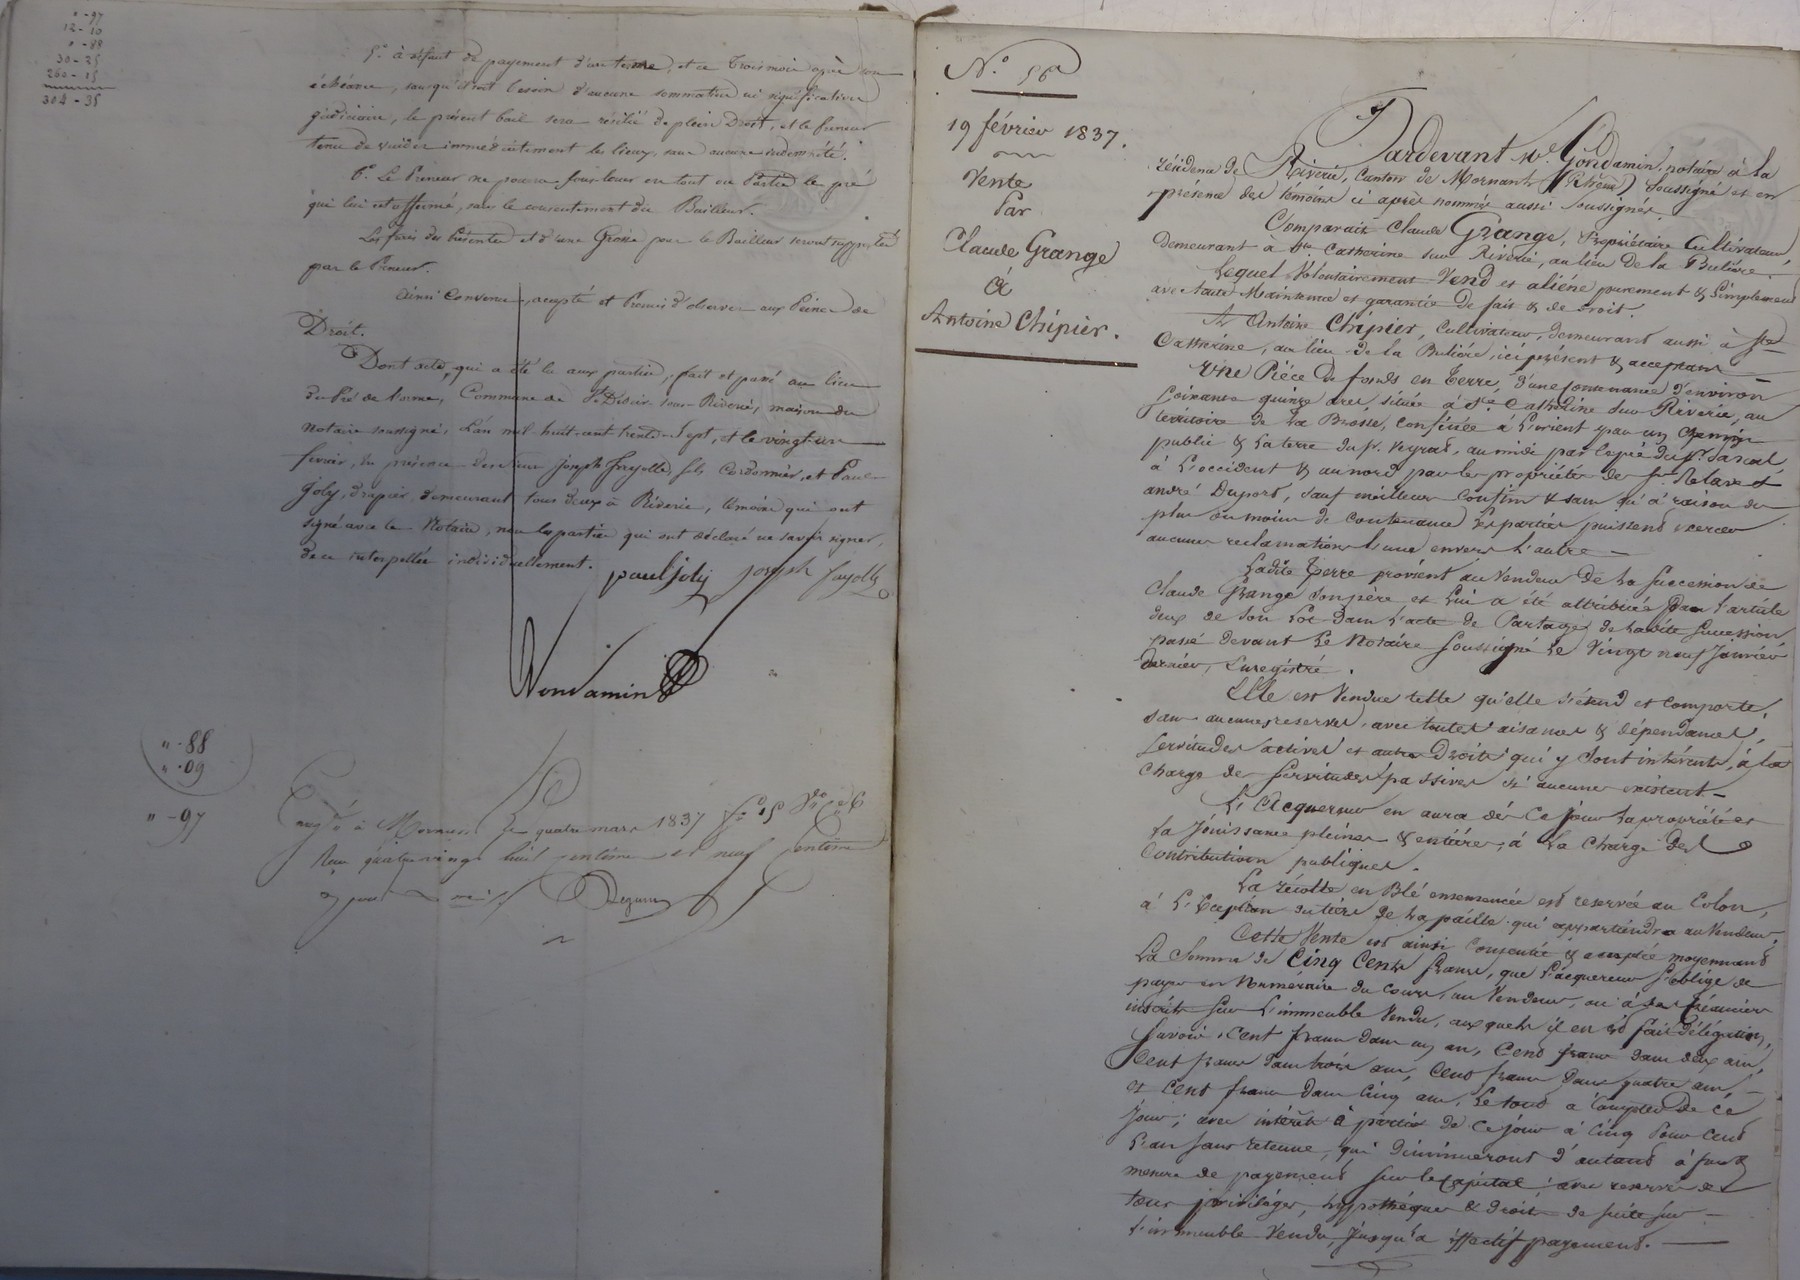 " - 97
12 - 10
" - 88
30 - 25
260 - 15
304 - 35
5.° à défaut de payement d'un terme, et ce trois mois après son
échéance, sans qu'il soit besoin d'aucune sommation ni signification
judiciaire, le présent bail sera résilié de plein Droit, et le fermier
tenu de vuider immédiatement les lieux, sans aucune indemnité.
6.° Le Preneur ne pourra sous louer en tout ou Partie le pré
qui lui est affermé, sans le consentement du Bailleur.
Les frais des présentes et d'une Grosse pour le Bailleur seront supportés
par le Preneur.
Ainsi Convenu, accepté et Promis d'observer aux Peines de
Droit.
Dont acte, qui a été lu aux parties, fait et passé au lieu
du Pré de Commune de St Didier-sous-Riverie, maison du
Notaire soussigné, L'an mil-huit-cent trente-sept, et le vingt-un
fevrier, en présence de Joseph fayolle, fils Cordonnier, et Paul
Joly, drapier, demeurant tous deux à Riverie, témoins qui ont
signé avec le Notaire, non les parties qui ont déclaré ne savoir signer,
de ce interpellées individuellement. paul joly joseph fayolle
Gondamin
" - 88
" - 09
" - 97
Enreg.é à Mornant le quatre mars 1837 f.° 15
Reçu quatre vingt huit centimes et neuf centimes
pour
N.° 56
19 février 1837.
Vente
Par
Claude Grange
à
Antoine Chipier.
Pardevant M.e Gondamin, notaire à la
résidence de Riverie, Canton de Mornant (Rhône) soussigné et en
présence des témoins ci après nommés aussi soussignés.
Comparait Claude Grange, Propriétaire Cultivateur,
demeurant à Ste Catherine sur Riverie, au lieu de la Bulière.
Lequel Volontairement Vend et aliène purement & simplement
avec toute Maintenue et garantie de fait & de droit.
A Antoine Chipier, Cultivateur, demeurant aussi à Ste
Catherine, au lieu de la Bulière, ici présent & acceptant
Une Pièce de fonds en Terre, d'une contenance d'environ
soixante quinze ares située à Ste Catherine sur Riverie, au
territoire de la Brosse, confinée à L'orient par un chemin
public & La terre du Sr. Neyrat, au midi par le pré du Sr. Pascal,
à L'occident & au nord par les propriétés de Sr. &
andré Duport, sauf meilleurs Confins & sans qu'à raison du
plus ou moins de contenance les parties puissent exercer
aucunes réclamations l'une envers L'autre —
Ladite Terre provient au Vendeur de La succession de
Claude Grange son père et Lui a été attribuée par L'article
deux de son Lot dans L'acte de Partage de Ladite succession
passé devant Le Notaire soussigné Le Vingt neuf Janvier
dernier, Enregistré.
Elle est Vendue telle qu'elle s'étend et comporte,
sans aucunes reserves, avec toutes aisances & dépendances,
servitudes actives et autres Droits qui y sont inhérents, à la
Charge des servitudes passives si aucunes existent —
L'Acquereur en aura dès ce jour la propriété et
La Jouissance pleines & entières, à La charge des
Contributions publiques.
La récolte en Blé ensemencée est reservée au Colon,
à L'Exception du tiers de La paille qui appartiendra au Vendeur.
Cette Vente est ainsi consentie & acceptée moyennant
La Somme de Cinq Cents francs, que L'acquereur s'oblige de
payer en Numéraire du cours, au Vendeur, ou à ses créanciers
inscrits sur L'immeuble Vendu, auxquels il en est fait délégation,
savoir: Cent francs dans un an, Cent francs dans deux ans,
Cent francs dans trois ans, Cent francs dans quatre ans
et Cent francs dans cinq ans, Le tout à Compter de Ce
jour; avec intérêts à partir de ce jour à Cinq Pour Cent
L'an sans retenue, qui diminueront d'autant à fur &
mesure de payement sur le Capital; avec reserve de
tous privilèges, hypothèques & droits de suite sur
L'immeuble Vendu, Jusqu'à effectif payement.